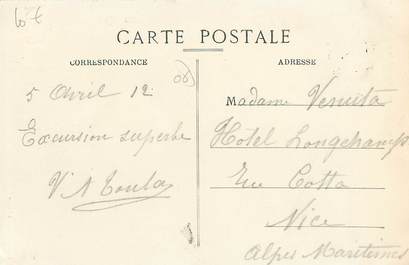 10 €
CARTE POSTALE
CORRESPONDANCE
ADRESSE
06
5 Avril 12
Excursion superbe
V A
Madame Venuta
Hotel Longchamps
Rue Cotta
Nice
Alpes Maritimes